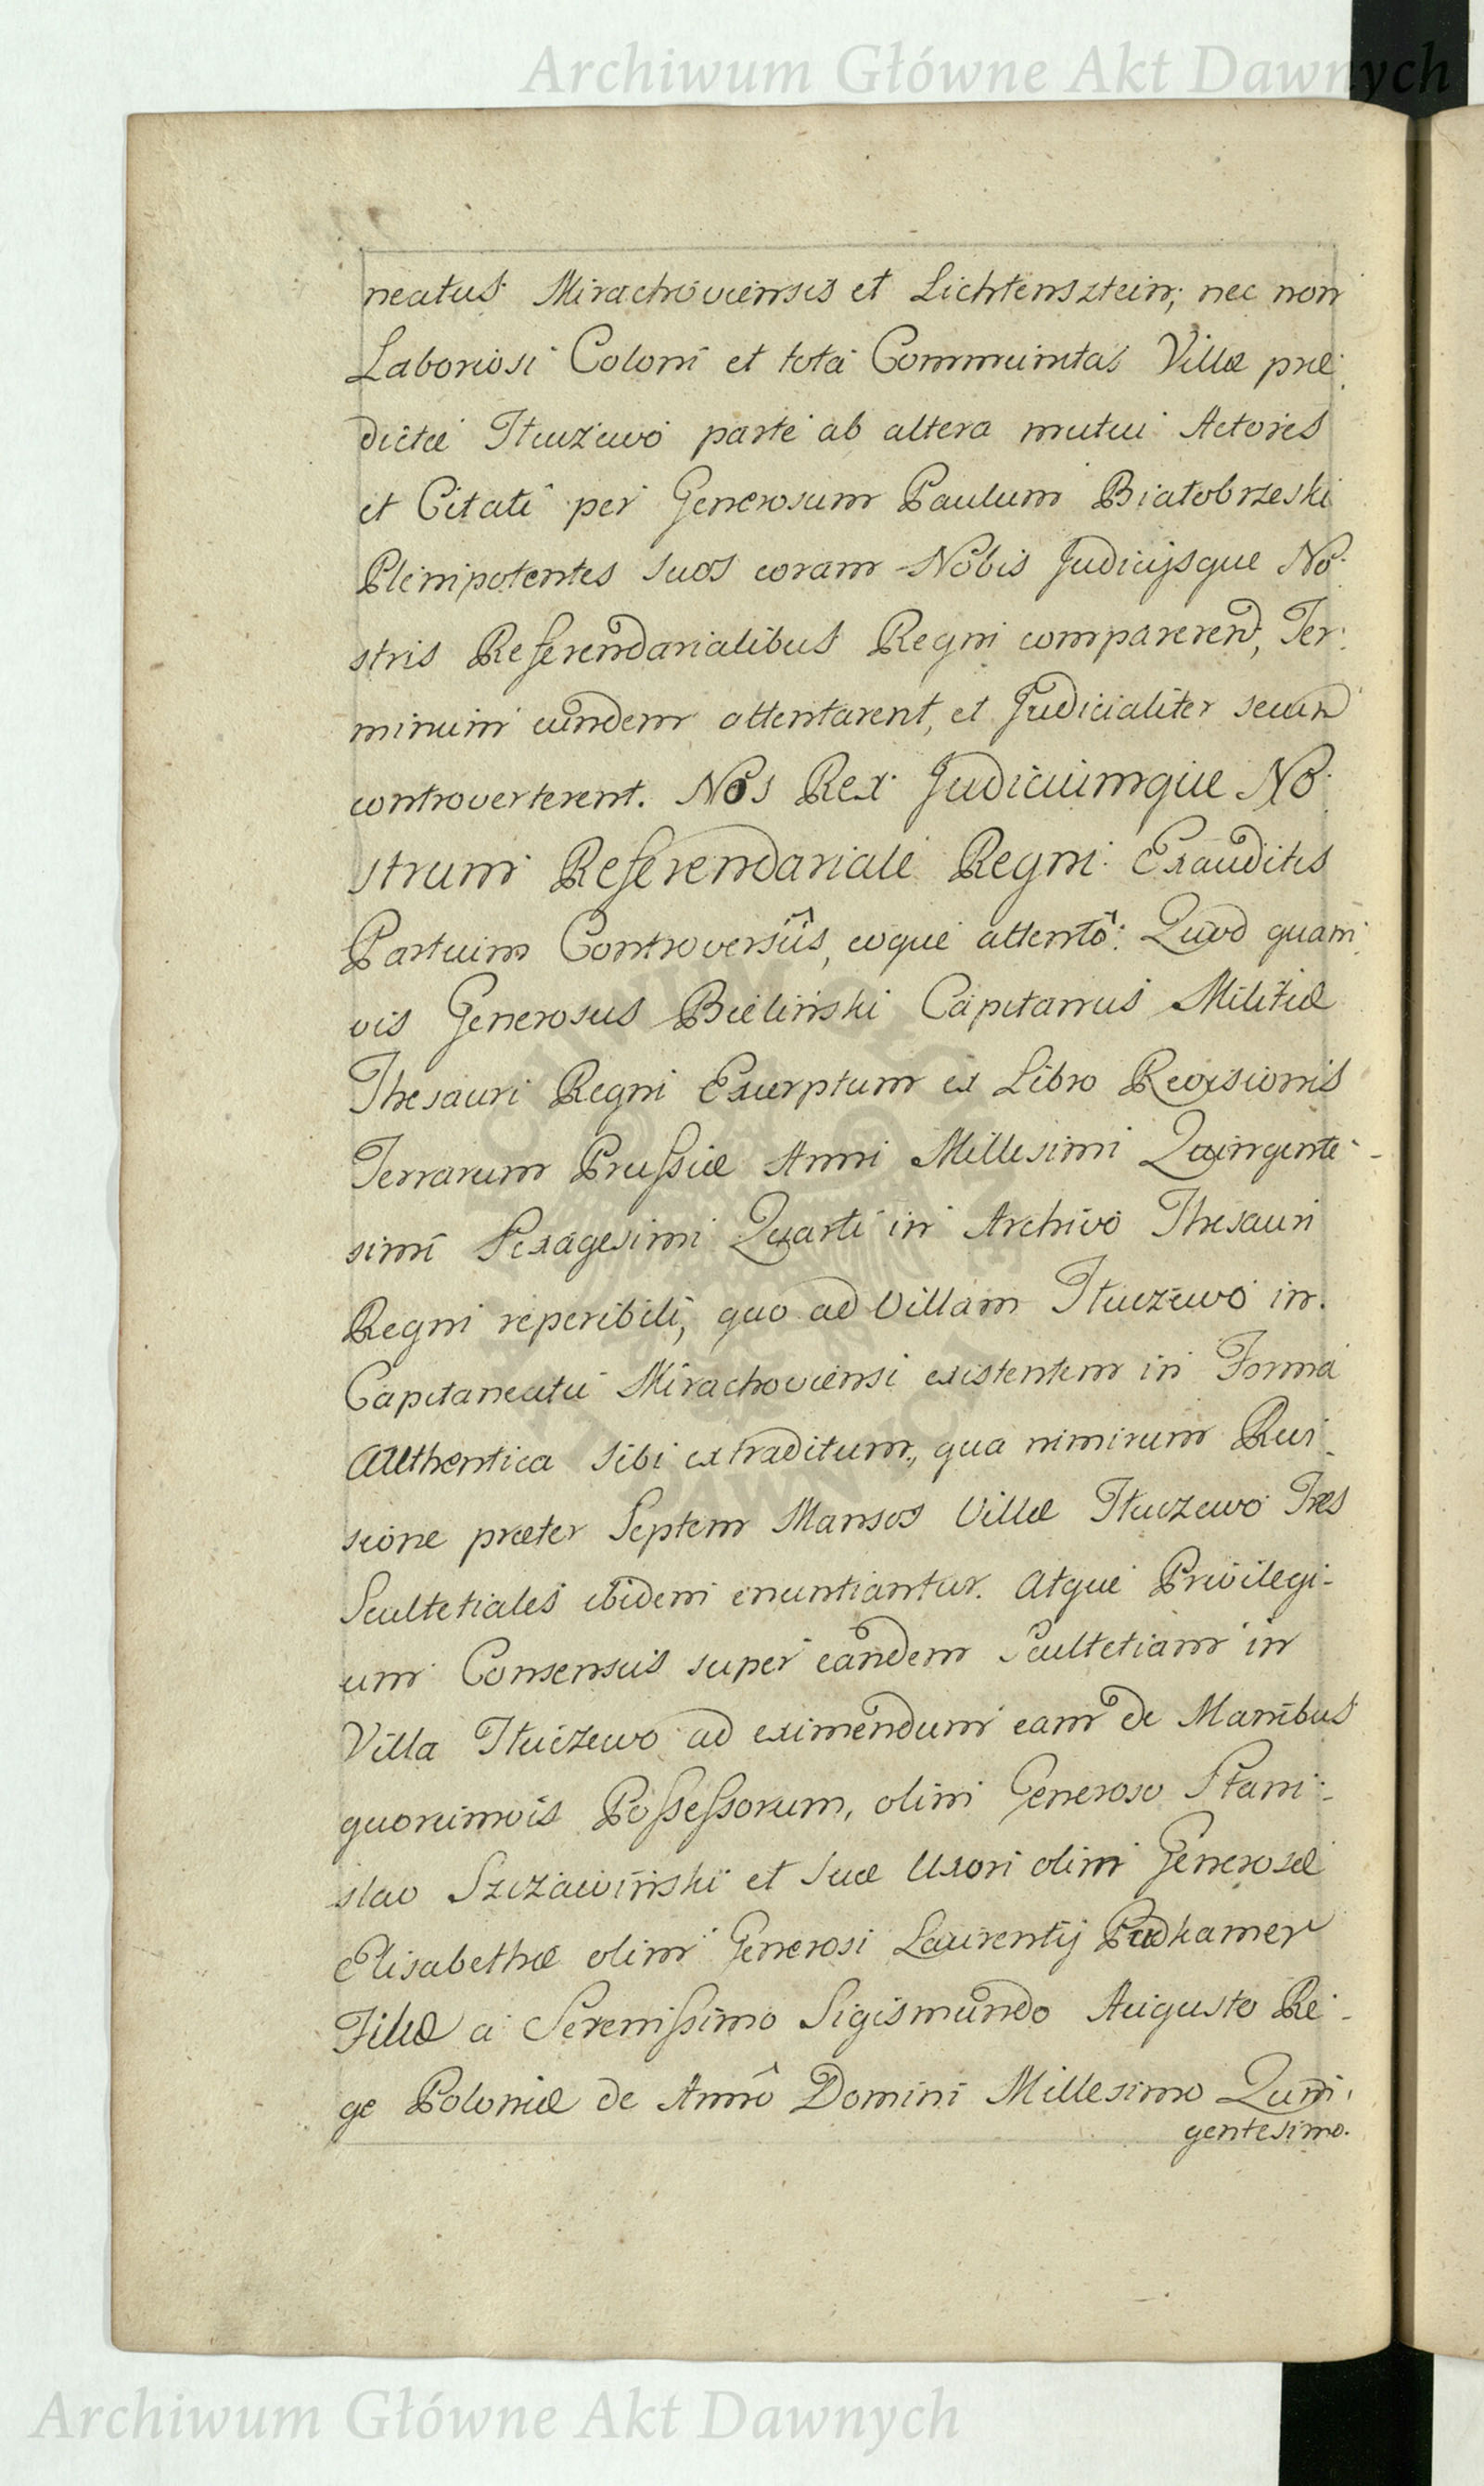 Archiwum Główne Akt Dawnych
neatus Mirachoviensis et Lichtensztein; nec non
Laboriosi Coloni et tota Communitas Villæ præ
dictæ Tłuczewo parte ab altera mutui Actores
et Citati per Generosum Paulum Białobrzeski
Plenipotentes suos coram Nobis Judicijsque No
stris Referendarialibus Regni comparerend, Ter
minum eundem attentarent, et Judicialiter secum
controverterent. Nos Rex Judiciumque No
strum Referendariale Regni Exauditis
Partium Controversiîs, eoque attentô: Quod quam
vis Generosus Bieliński Capitanus Militiæ
Thesauri Regni Excerptum ex Libro Revisionis
Terrarum Prussiæ Anni Millesimi Quingente-
simi Sexagesimi Quarti in Archivo Thesauri
Regni reperibili, quo ad Villam Tłuczewo in
Capitaneatu Mirachoviensi existentem in Forma
Authentica sibi extraditum, qua nimirum Revi
sione præter Septem Mansos Villæ Tłuczewo Tres
Scultetiales ibidem enuntiantur. Atque Privilegi-
um Consensus super eandem Scultetiam in
Villa Tłuczewo ad eximendum eam de Manibus
quorumvis Possessorum, olim Generoso Stani-
slao Szczawiński et suæ Uxori olim Generosæ
Elisabethæ olim Generosi Laurentij Pudkamer
Filiæ a Serenissimo Sigismundo Augusto Re-
ge Poloniæ de Annô Domini Millesimo Quin
gentesimo.
Archiwum Główne Akt Dawnych